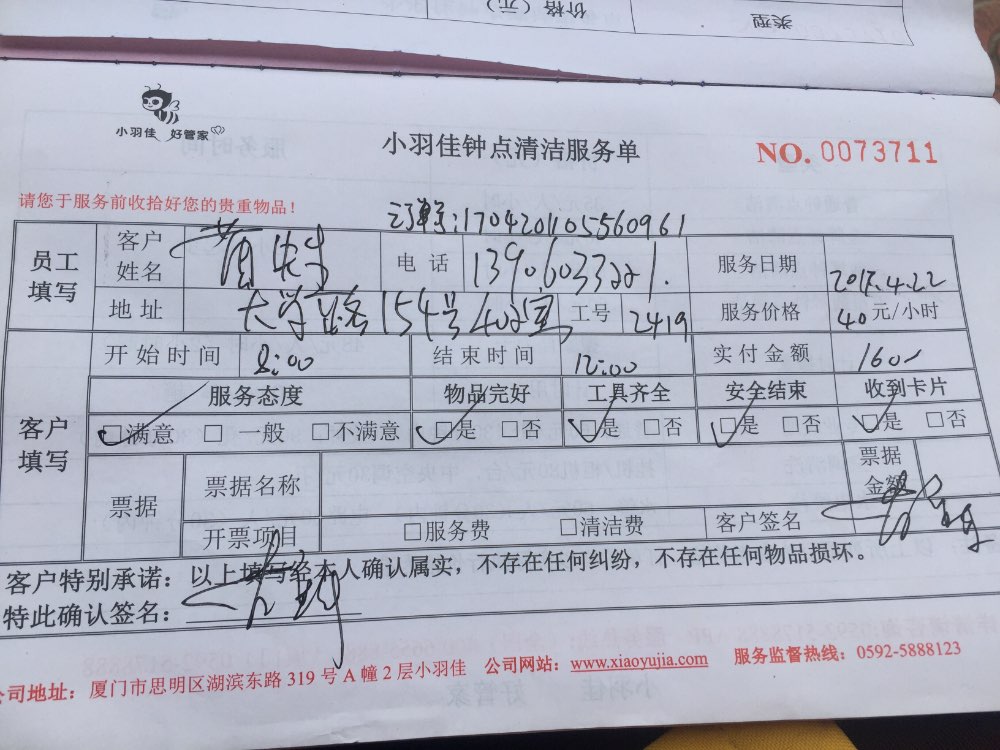 类型
价格（元）
小羽佳 好管家
小羽佳钟点清洁服务单
NO. 0073711
请您于服务前收拾好您的贵重物品！
订单号:1704201105560961
员工填写
客户姓名 黄先生 电话 服务日期 2017.4.22
地址 大学路154号 工号 2419 服务价格 40元/小时
开始时间 8:00 结束时间 12:00 实付金额 160
客户填写
服务态度 物品完好 工具齐全 安全结束 收到卡片
☑满意 □一般 □不满意 ☑是 □否 ☑是 □否 ☑是 □否 ☑是 □否
票据 票据名称 票据金额
开票项目 □服务费 □清洁费 客户签名
客户特别承诺：以上填写经本人确认属实，不存在任何纠纷，不存在任何物品损坏。
特此确认签名：
公司地址：厦门市思明区湖滨东路 319 号 A 幢 2 层小羽佳 公司网站：www.xiaoyujia.com 服务监督热线：0592-5888123